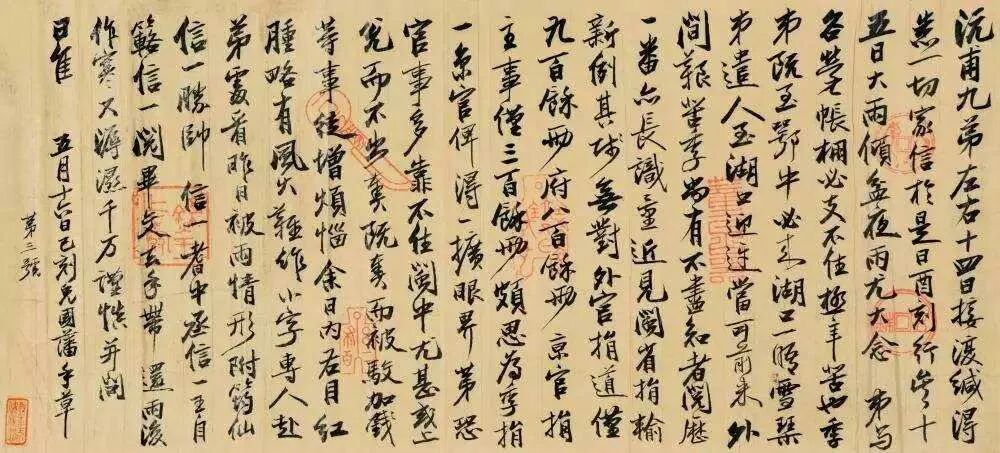 沅甫九弟左右十四日接復緘得
悉一切家信於是日酉刻行矣十
五日大雨傾盆夜雨尤大念弟与
各營帳棚必支不住極辛苦也季
弟既至鄂中必来湖口一晤雪琴
弟遣人至湖口迎迓當可前来外
間艱苦季尚有不盡知者閱歷
一番亦長識量近見閩省捐輸
新例其減無對外官捐道僅
九百餘兩府八百餘兩京官捐
主事僅三百餘兩頗思為季捐
一京官俾得一擴眼界第恐
官事多靠不住閩中尤甚或上
兌而不出奏既奏而被駁加錢
等事徒增煩惱余日內右目紅
腫略有風火難作小字專人赴
弟處看昨日被雨情形附筠仙
信一勝帥信一耆中丞信一
信一閱畢交去手帶還雨後
作寒又溽濕千万謹慎并問
日佳 五月十六日巳刻兄國藩手草
第三號